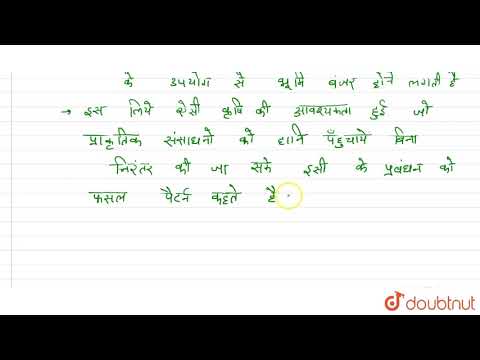 के उपयोग से भूमि बंजर होने लगती है
→ इस लिये ऐसी कृषि की आवश्यकता हुई जो
प्राकृतिक संसाधनो को हानि पँहुचाये बिना
निरंतर की जा सके इसी के प्रबंधन को
फसल पैटर्न कहते है
doubtnut